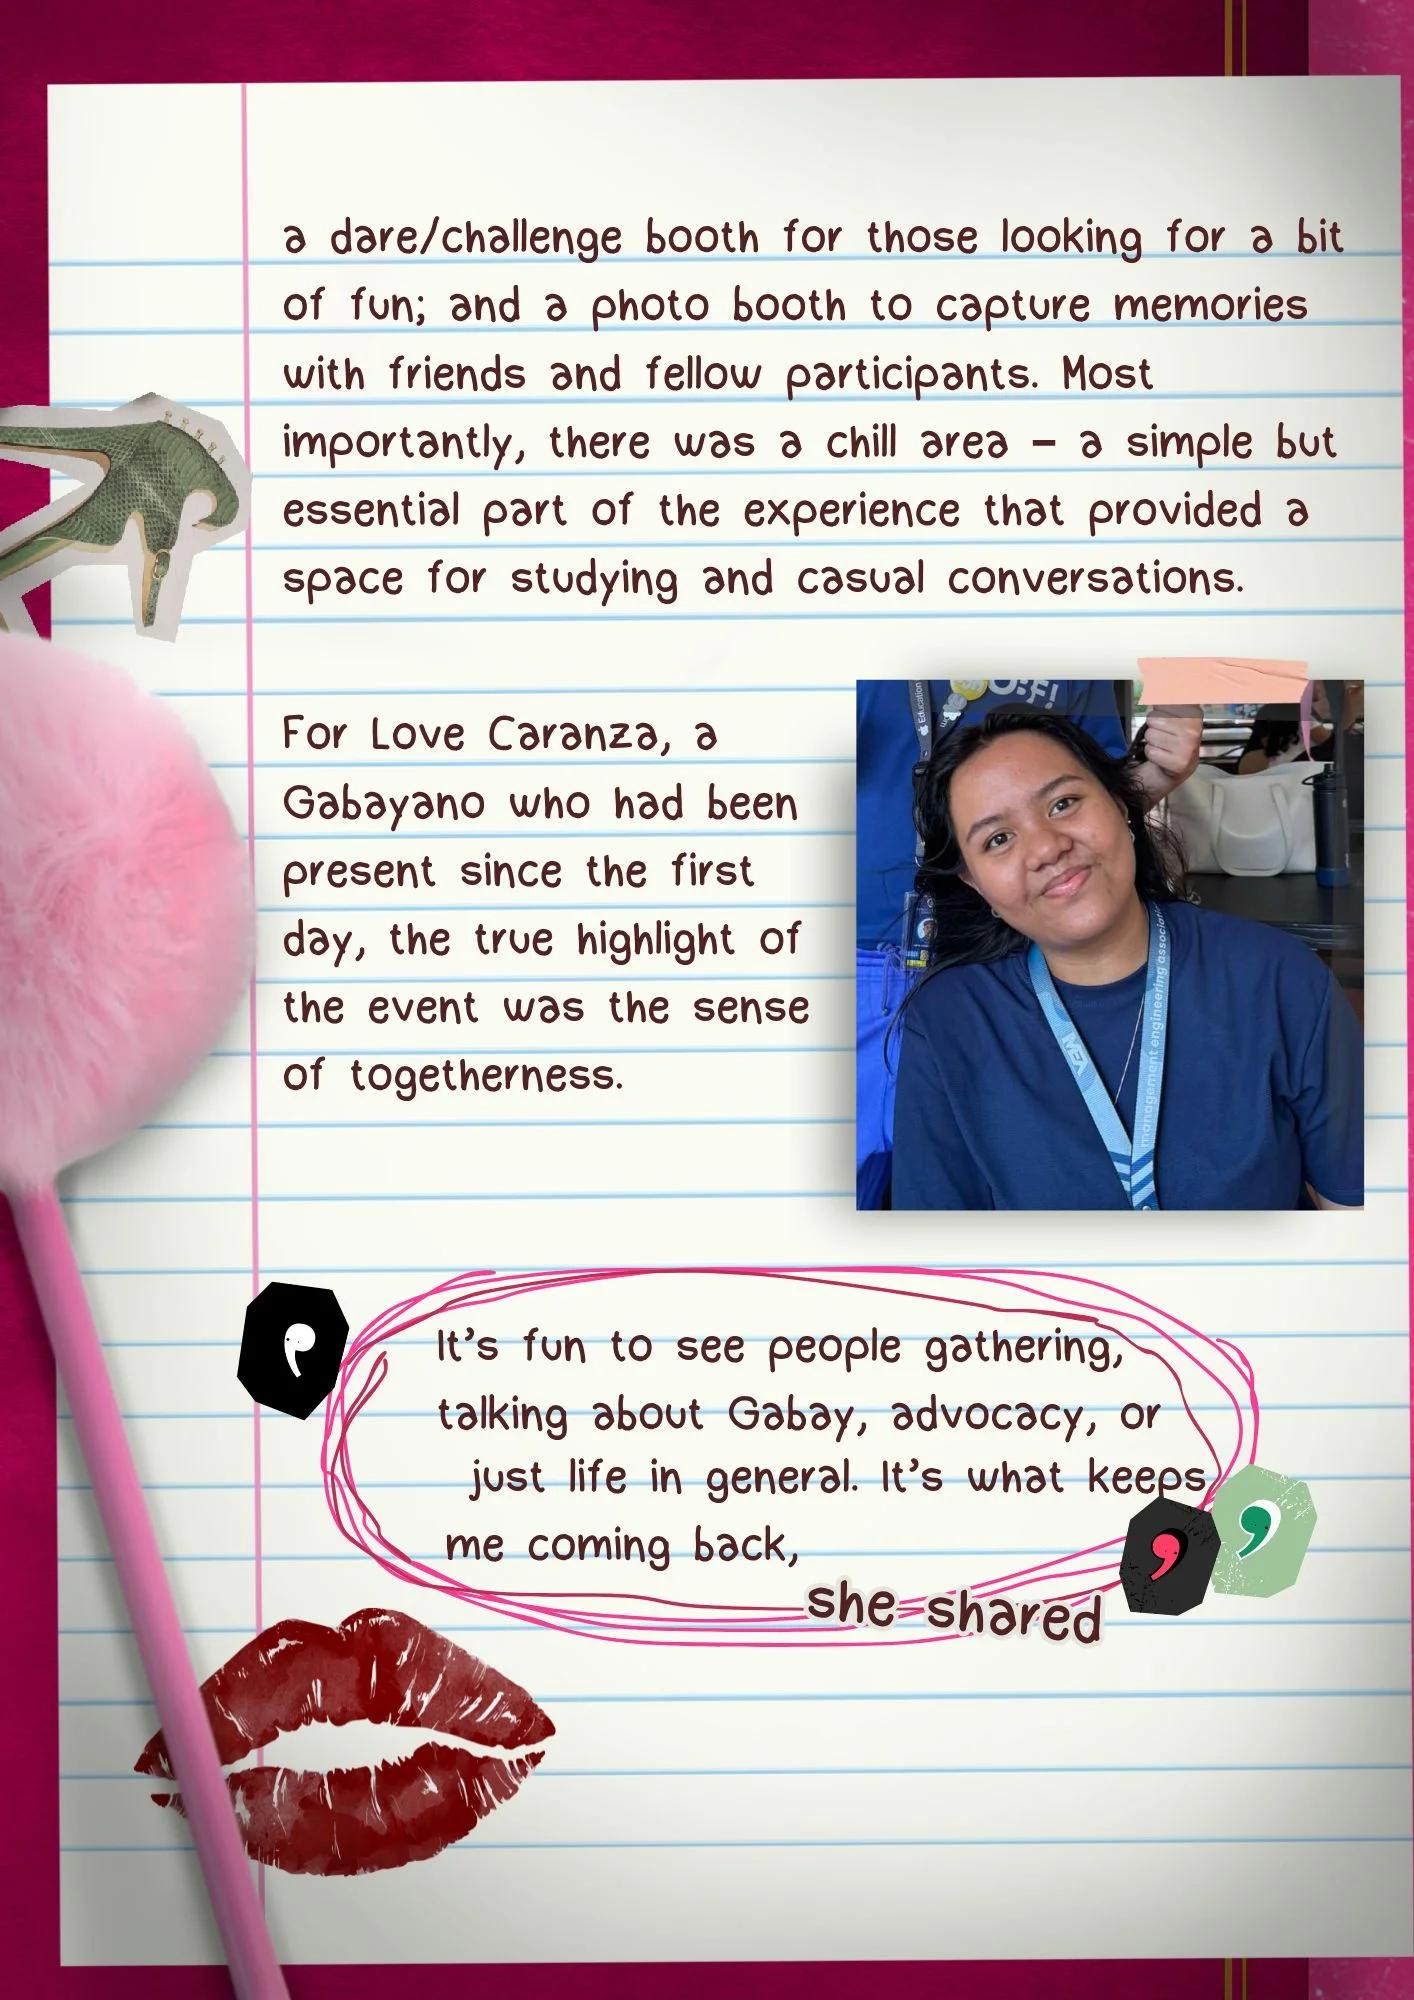 a dare/challenge booth for those looking for a bit
of fun; and a photo booth to capture memories
with friends and fellow participants. Most
importantly, there was a chill area – a simple but
essential part of the experience that provided a
space for studying and casual conversations.
For Love Caranza, a
Gabayano who had been
present since the first
day, the true highlight of
the event was the sense
of togetherness.
Education
MEA
management engineering associatio
It’s fun to see people gathering,
talking about Gabay, advocacy, or
just life in general. It’s what keeps
me coming back,
she shared